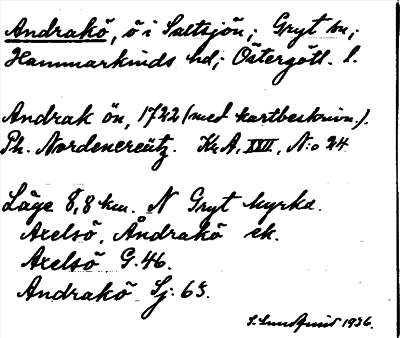 Andrakö, ö i Saltsjön; Gryt sn;
Hammarkinds hd; Östergötl. l.
Andrak ön, 1722 (med kartbeskrivn.).
Ph. Nordencreütz. Kr.A. XXIII, N:o 24.
Läge 8,8 km. N Gryt kyrka.
Axelsö, Åndrakö ek.
Axelsö G. 46.
Andrakö Sj. 63.
S. Lundquist 1936.